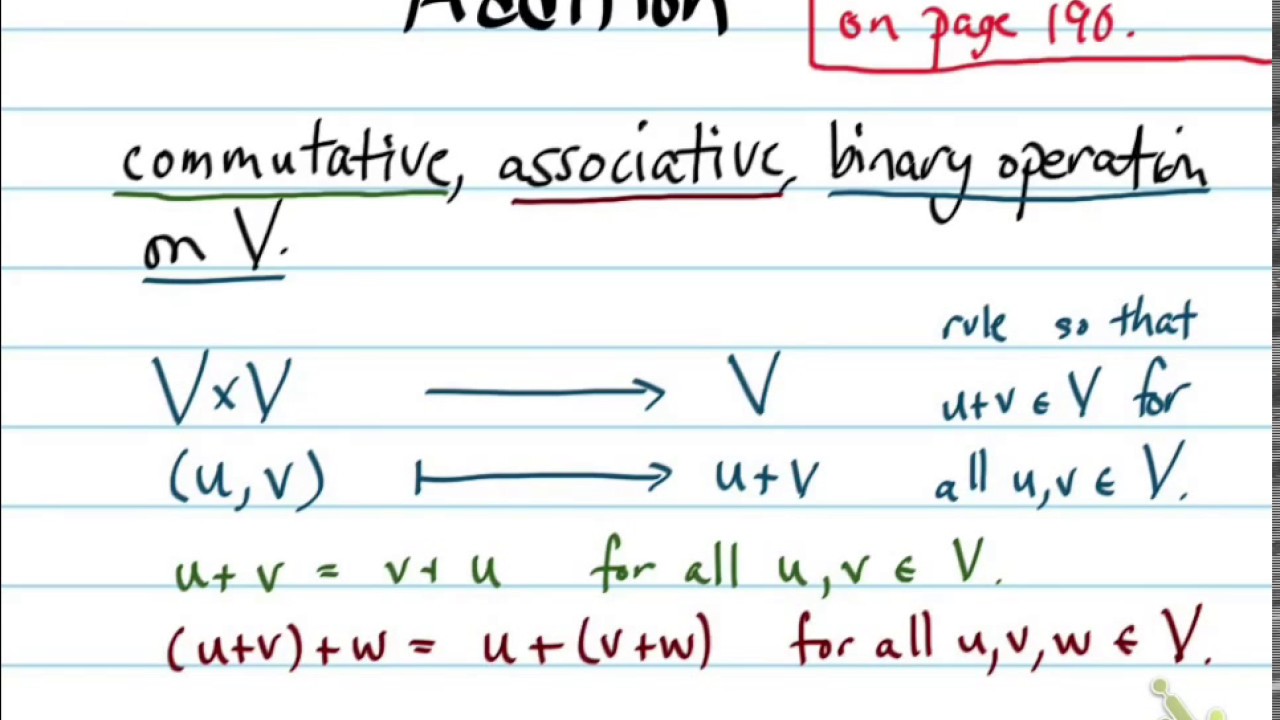 Addition
on page 190.
commutative, associative, binary operation
on V.
rule so that
V×V ⟶ V u+v ∈ V for
(u, v) ⟼ u+v all u,v ∈ V.
u+v = v+u for all u,v ∈ V.
(u+v)+w = u+(v+w) for all u,v,w ∈ V.